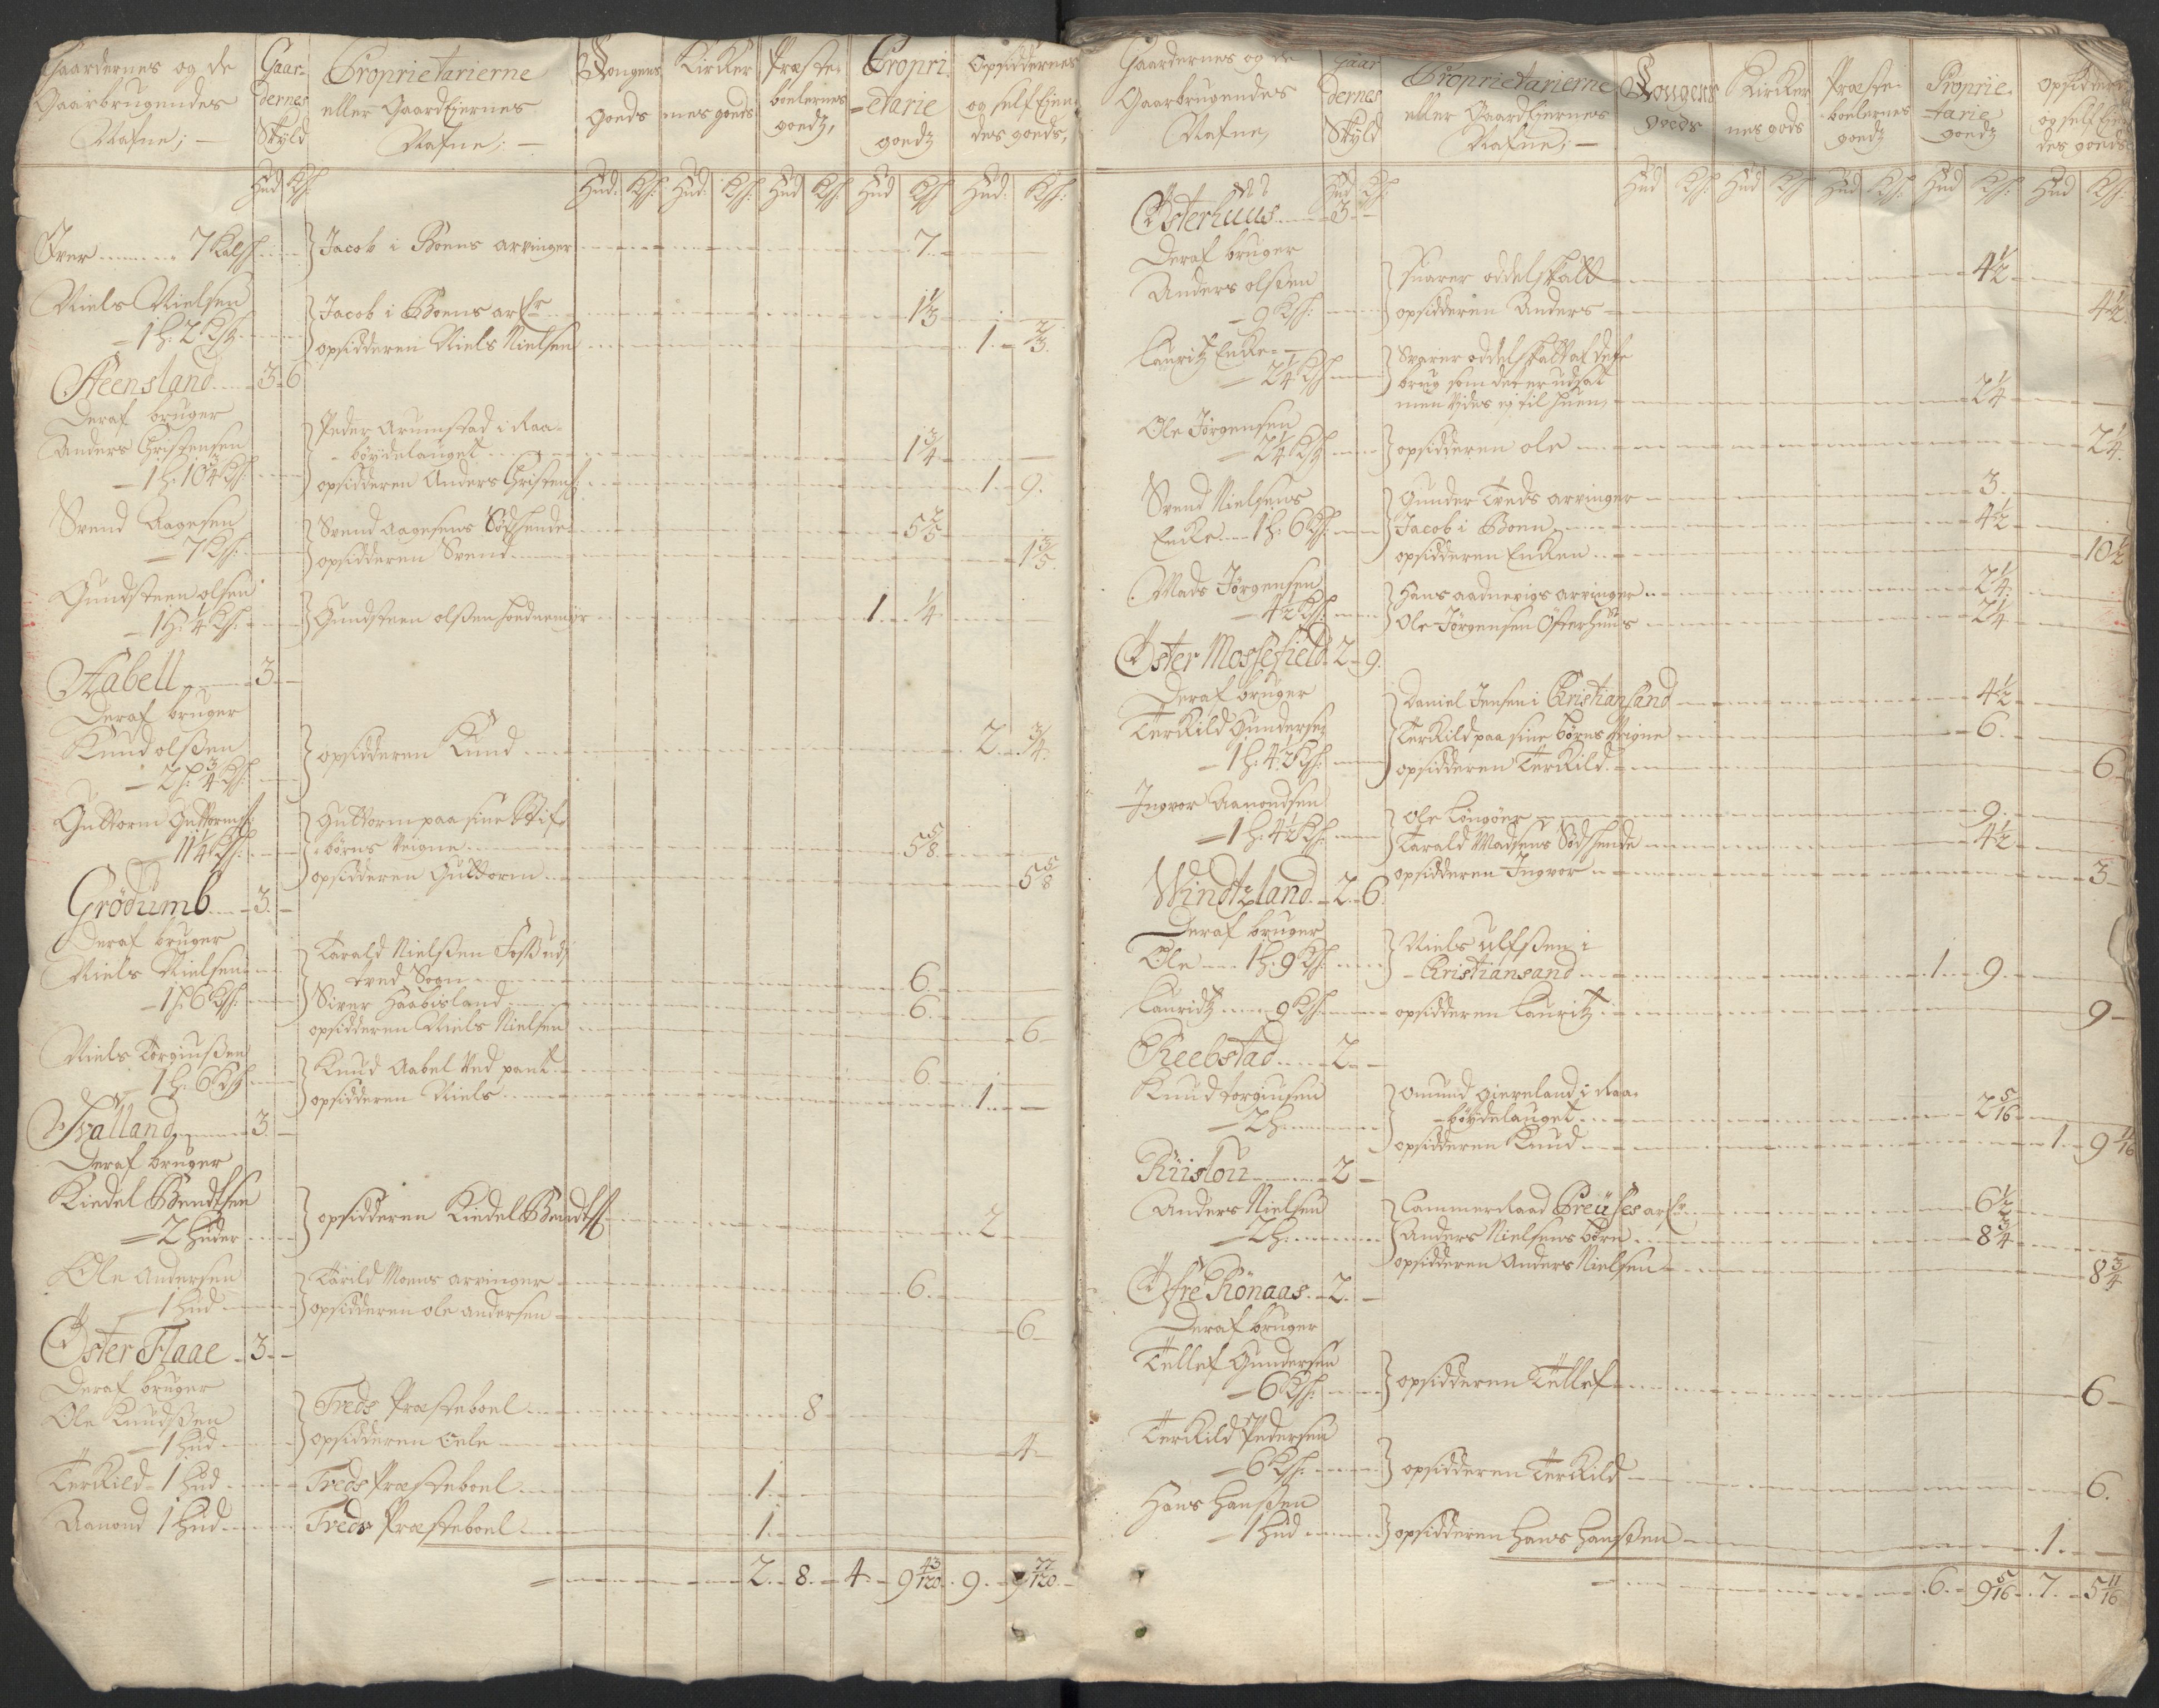 Gaardernes og de
Gaarbrugendes
Nafne;
Gaar-
dernes
Skyld
Proprietarierne
eller GaardEjernes
Nafne;
Kongens
goeds
Kircker
nes goeds
Præste-
boelernes
goedz,
Propri
-etarie
goedz
Opsiddernes
og self Ejen-
des goeds,
Hud Ksh: Hud: Ksh: Hud: Ksh: Hud Ksh: Hud Ksh Hud: Ksh:
Iver 7 Kalfsk: Jacob i Boens arvinger 7
Niels Nielsen
1 h: 2 Ksh: Jacob i Boens arfr 1 1/3
opsidderen Niels Nielsen 1 2/3
Steensland 3 6
Deraf bruger
Anders Christensen
1 h: 10 3/4 Ksh: Peder Arumstad i Raa-
bøydelauget 1 3/4
opsidderen Anders Christens: 1 9
Svend Aagesen
7 Ksh: Svend Aagesens Sødskende 5 2/5
opsidderen Svend 1 3/5
Gundsteen olsen
1 h: 1/4 Ksh: Gundsteen olsen hodnemyr 1 1/4
Aabell 3
Deraf bruger
Knud olsen
2 h: 3/4 Ksh: opsidderen Knud 2 3/4
Guttorm Guttorms:
11 1/4 Ksh: Guttorm paa sine Stif
børns Veigne 5 5/8
opsidderen Guttorm 5 5/8
Grødumb 3
Deraf bruger
Niels Nielsen
1 h: 6 Ksh: Tarald Nielsen Foss udj
tved Sogn 6
Siver Haabisland 6
opsidderen Niels Nielsen 6
Niels Torgiusen
1 h: 6 Ksh: Knud Aabel Ved pant 6
opsidderen Niels 1
Traland 3
Deraf bruger
Kiedel Bendtsen
2 huder opsidderen Kiedel Bendts: 2
Ole Andersen
1 hud Tarild Moens arvinger 6
opsidderen ole andersen 6
Øster Flaae 3
Deraf bruger
Ole Knudsen
1 hud Treds Præsteboel 8
opsidderen oele 4
Terkild 1 hud Treds Præsteboel 1
Aamond 1 hud Treds Præsteboel 1
2 8 4 9 43/120 9 9 77/120
Gaardernes og de
Gaarbrugendes
Nafne,
Gaar
dernes
Skyld
Proprietarierne
eller GaardEjernes
Nafne;
Kongens
goeds
Kircker
nes gods
Præste-
boelernes
goedz
Proprie-
tarie
goedz
Opsidder
og self Ejen
des goeds
Hud Ksh: Hud Ksh: Hud Ksh Hud Ksh: Hud Ksh: Hud Ksh:
Østerhuus 3
Deraf bruger
Anders olsen
9 Ksh: Svarer oddelskatt 4 1/2
opsidderen Anders 4 1/2
Lauritz Encke
2 1/4 Ksh Svarer oddelskatt af dette
brug som det er udsat
men Vides ej til huem 2 1/4
Ole Jørgensen
2 1/4 Ksh opsidderen ole 2 1/4
Svend Nielsens
Encke 1 h: 6 Ksh: Gunder Treds arvinger 3
Jacob i Boen 4 1/2
opsidderen Encken 10 1/2
Mads Jørgensen
4 1/2 Ksh: Hans aadnevigs arvinger 2 1/4
Ole Jørgensen Østerhuus 2 1/4
Øster Mossefield 2 9
Deraf bruger
Terkild Gundersen
1 h: 4 1/2 Ksh: Daniel Jensen i Christiansand 4 1/2
Terkild paa sine børns Veigne 6
opsidderen Terkild 6
Ingvor Aamondsen
1 h: 4 1/2 Ksh: Ole Longøen 9
Tarald Madsens Sødskende 4 1/2
opsidderen Ingvor 3
Windtzland 2 6
Deraf bruger
Ole 1 h: 9 Ksh: Niels ulfsen i
Christiansand 1 9
Lauridtz 9 Ksh: opsidderen Lauritz 9
Reebstad 2
Knud torgiusen
2 h: omund Giereland i Raa-
bøydelauget 2 5/16
opsidderen Knud 1 9 11/16
Riislou 2
Anders Nielsen
2 h: Cammerraad Preuses arfr 6 1/2
Anders Nielsens børn 8 3/4
opsidderen Anders Nielsen 8 3/4
Øfre Rønaas 2
Deraf bruger
Tellef Gundersen
6 Ksh: opsidderen Tellef 6
Terkild Pedersen
6 Ksh: opsidderen Terkild 6
Hans Hansen
1 hud opsidderen Hans Hansen 1
6 9 5/16 7 5 11/16